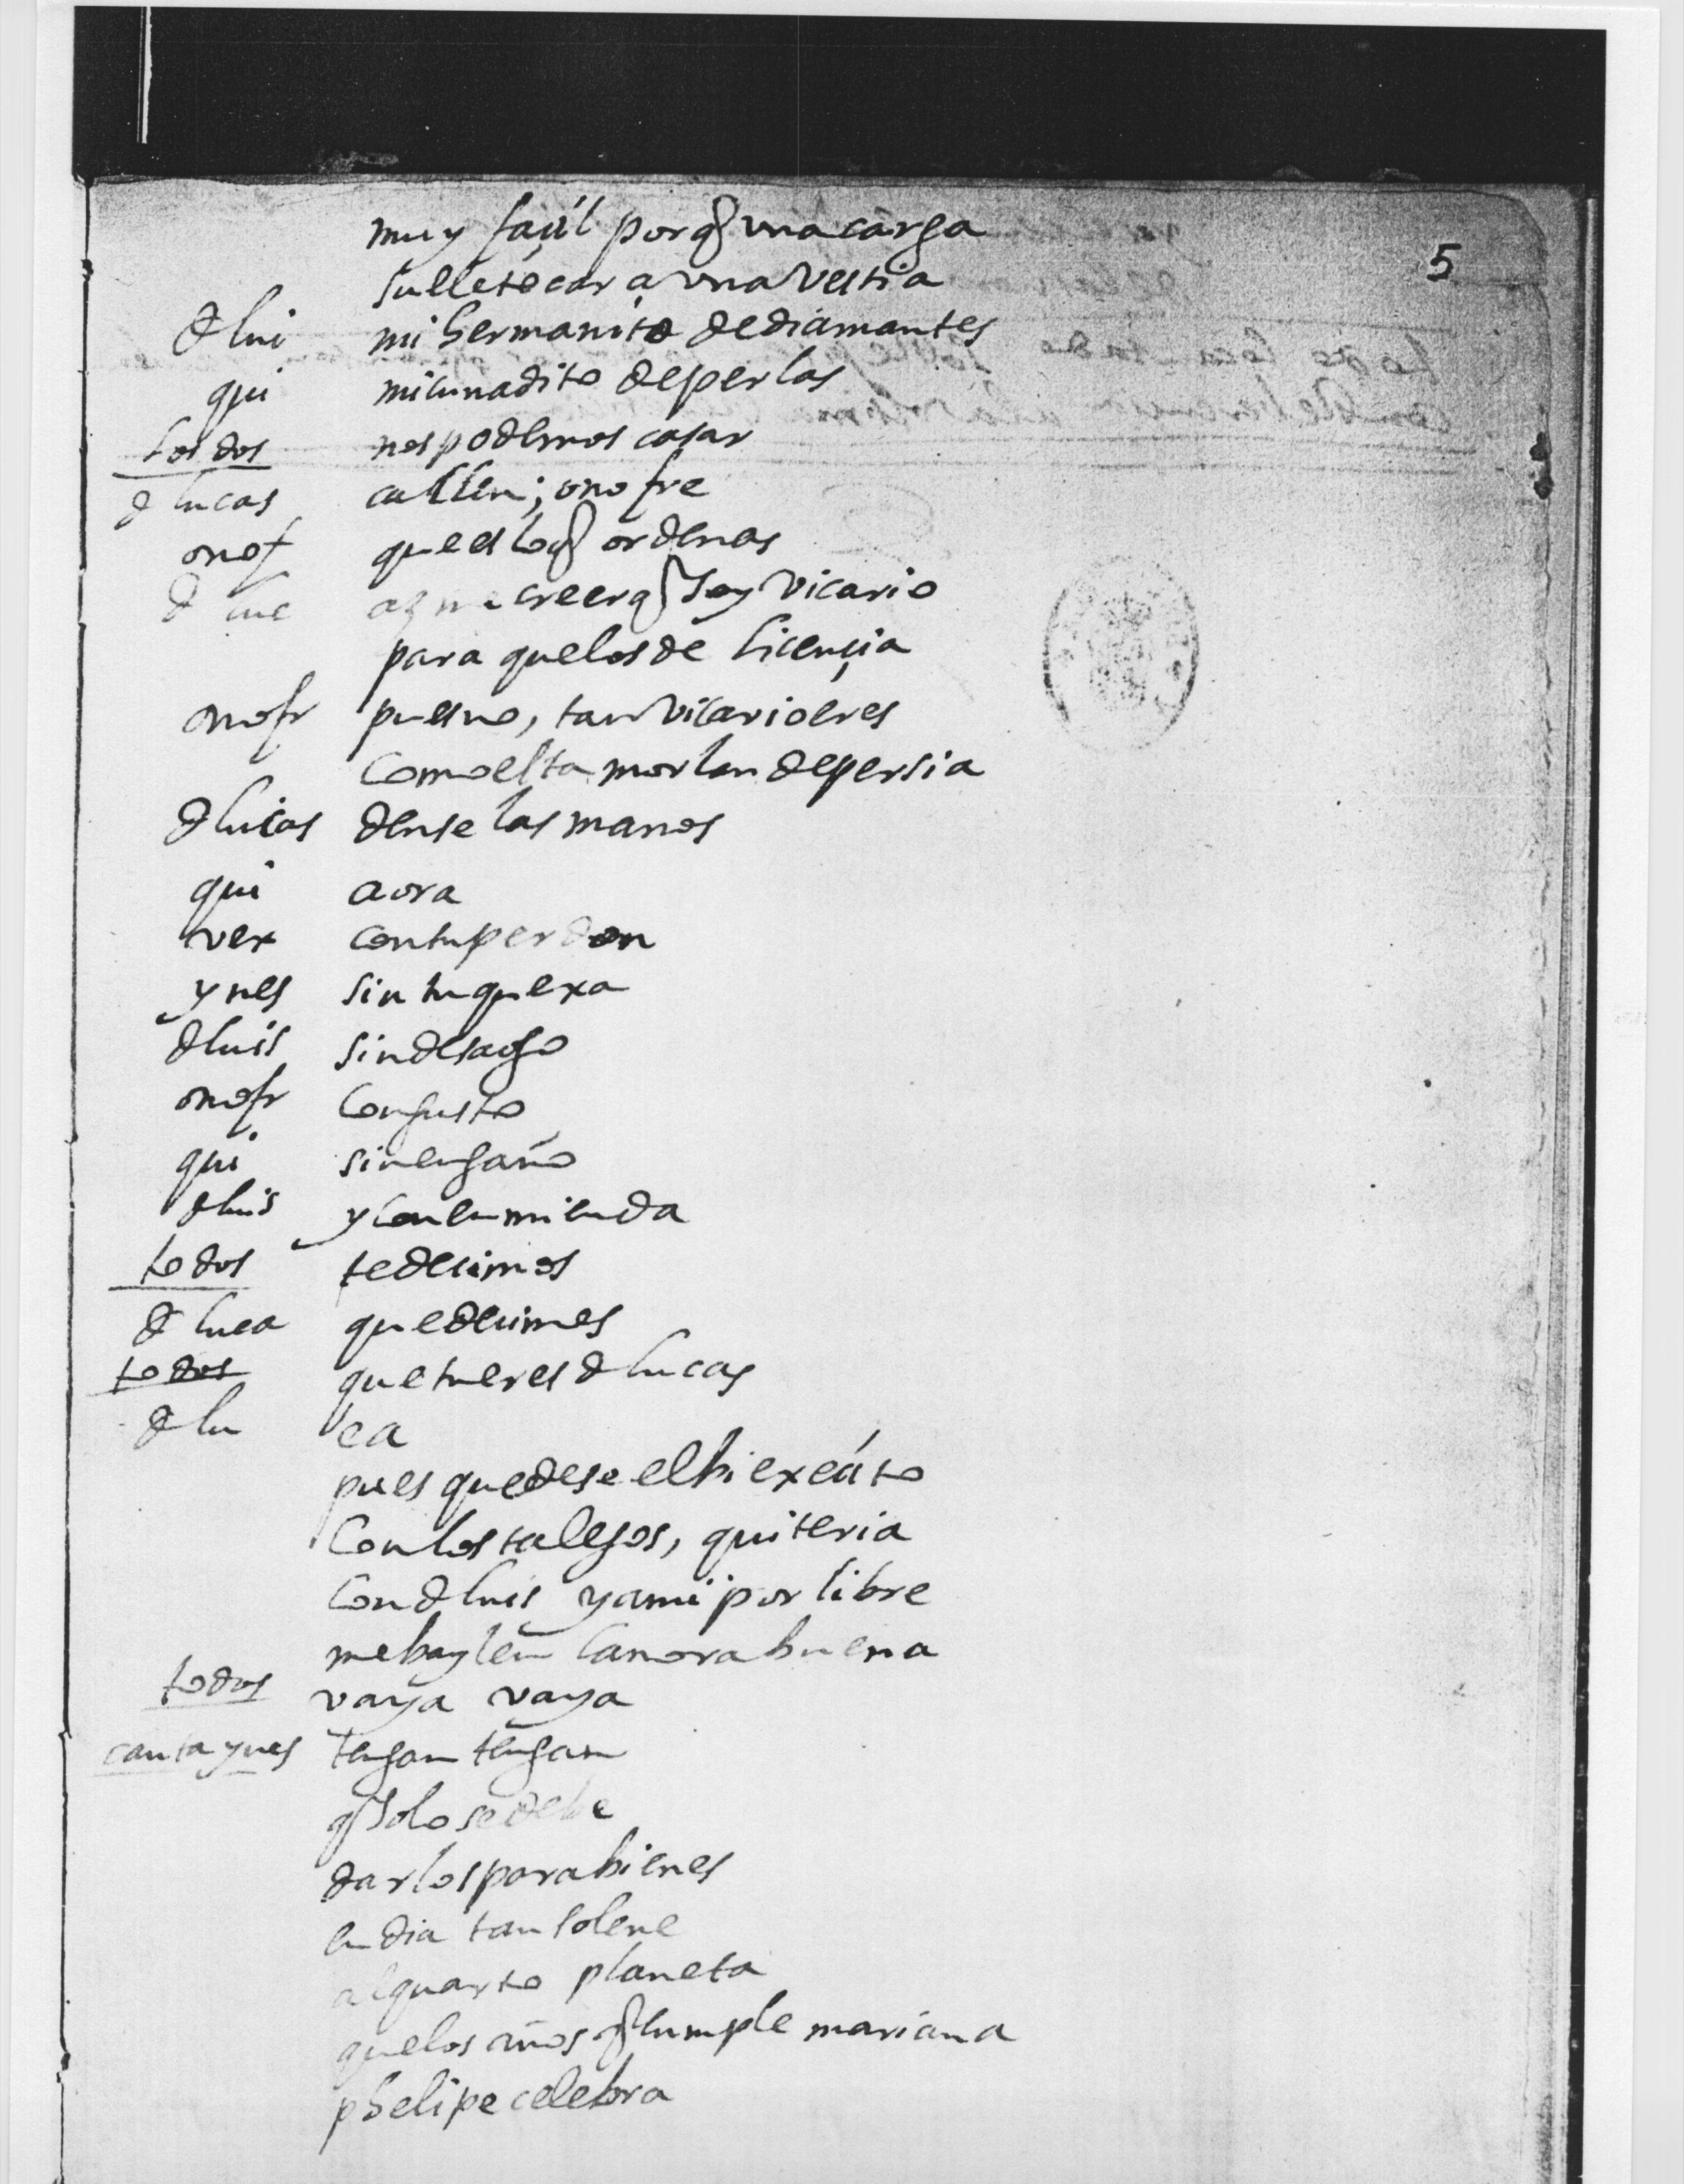 5
muy façil porq una carga
suele tocar a una vestia
d lui mi hermanito de diamantes
qui mi cunadito de perlas
los dos nos podemos casar
d lucas callen; onofre
onof que es lo q ordenas
d luc creer q soy vicario
para que los de liçençia
onofr pues no, tan vicario eres
como el tamorlan de persia
d lucas dense las manos
qui aora
vex con tu perdon
ynes sin tu quexa
d luis sin desaogo
onofr con gusto
qui sin engaño
d luis y con enmienda
todos te decimos
d luca que decimos
todos que tu eres d lucas
d lu ea
pues quedese el biexcito
con los talegos, quiteria
con d luis y a mi por libre
me baylen la norabuena
todos vaya vaya
canta ynes tengan tengan
q solo se debe
dar los parabienes
en dia tan solene
al quarto planeta
que los años q cumple mariana
phelipe celebra